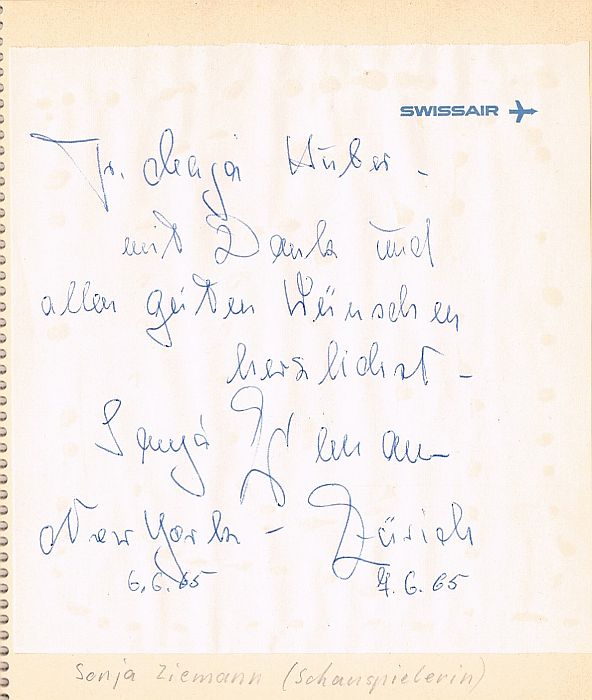 SWISSAIR
Fr. Maja Huber -
mit Dank und
allen guten Wünschen
herzlichst -
Sonja Ziemann
New York - Zürich
6.6.65 7.6.65
Sonja Ziemann (Schauspielerin)